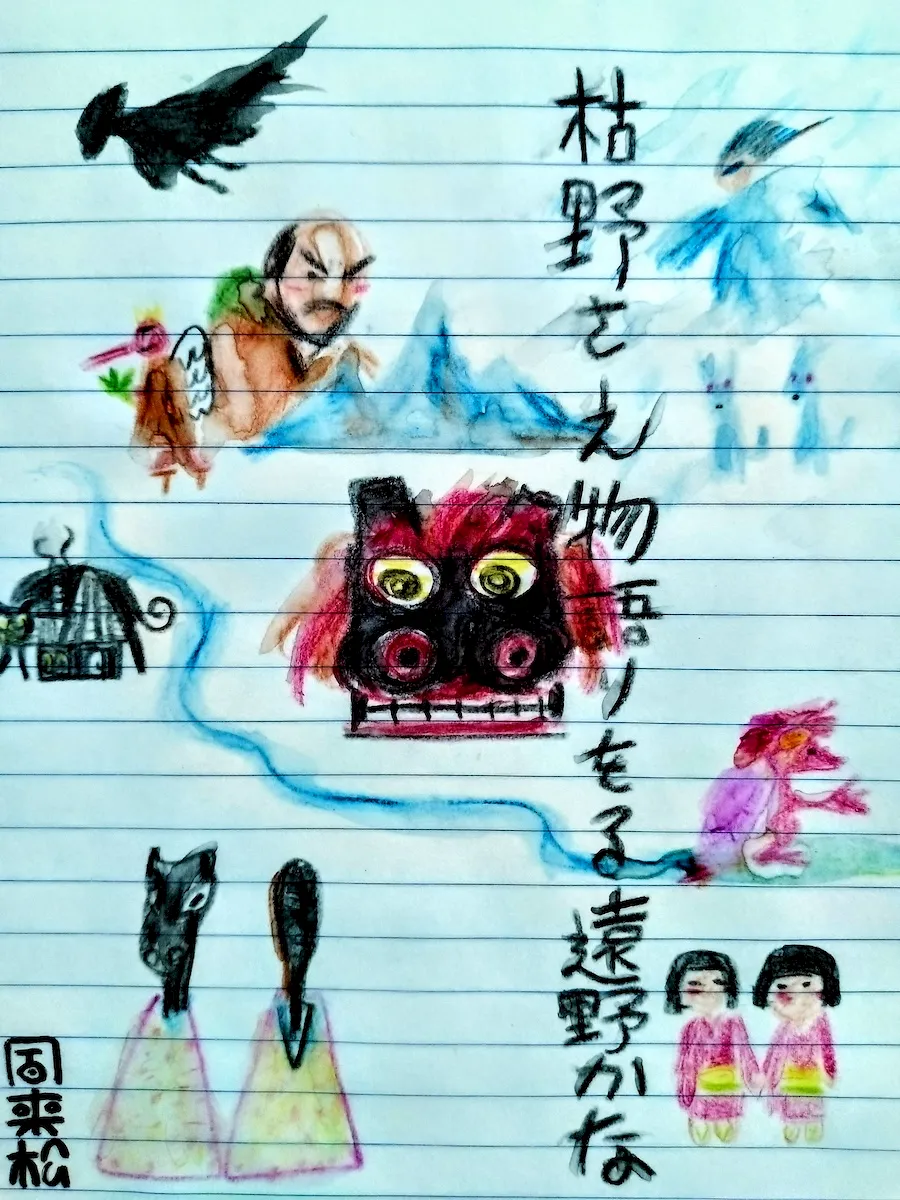 枯野さえ物語りをる遠野かな
来松